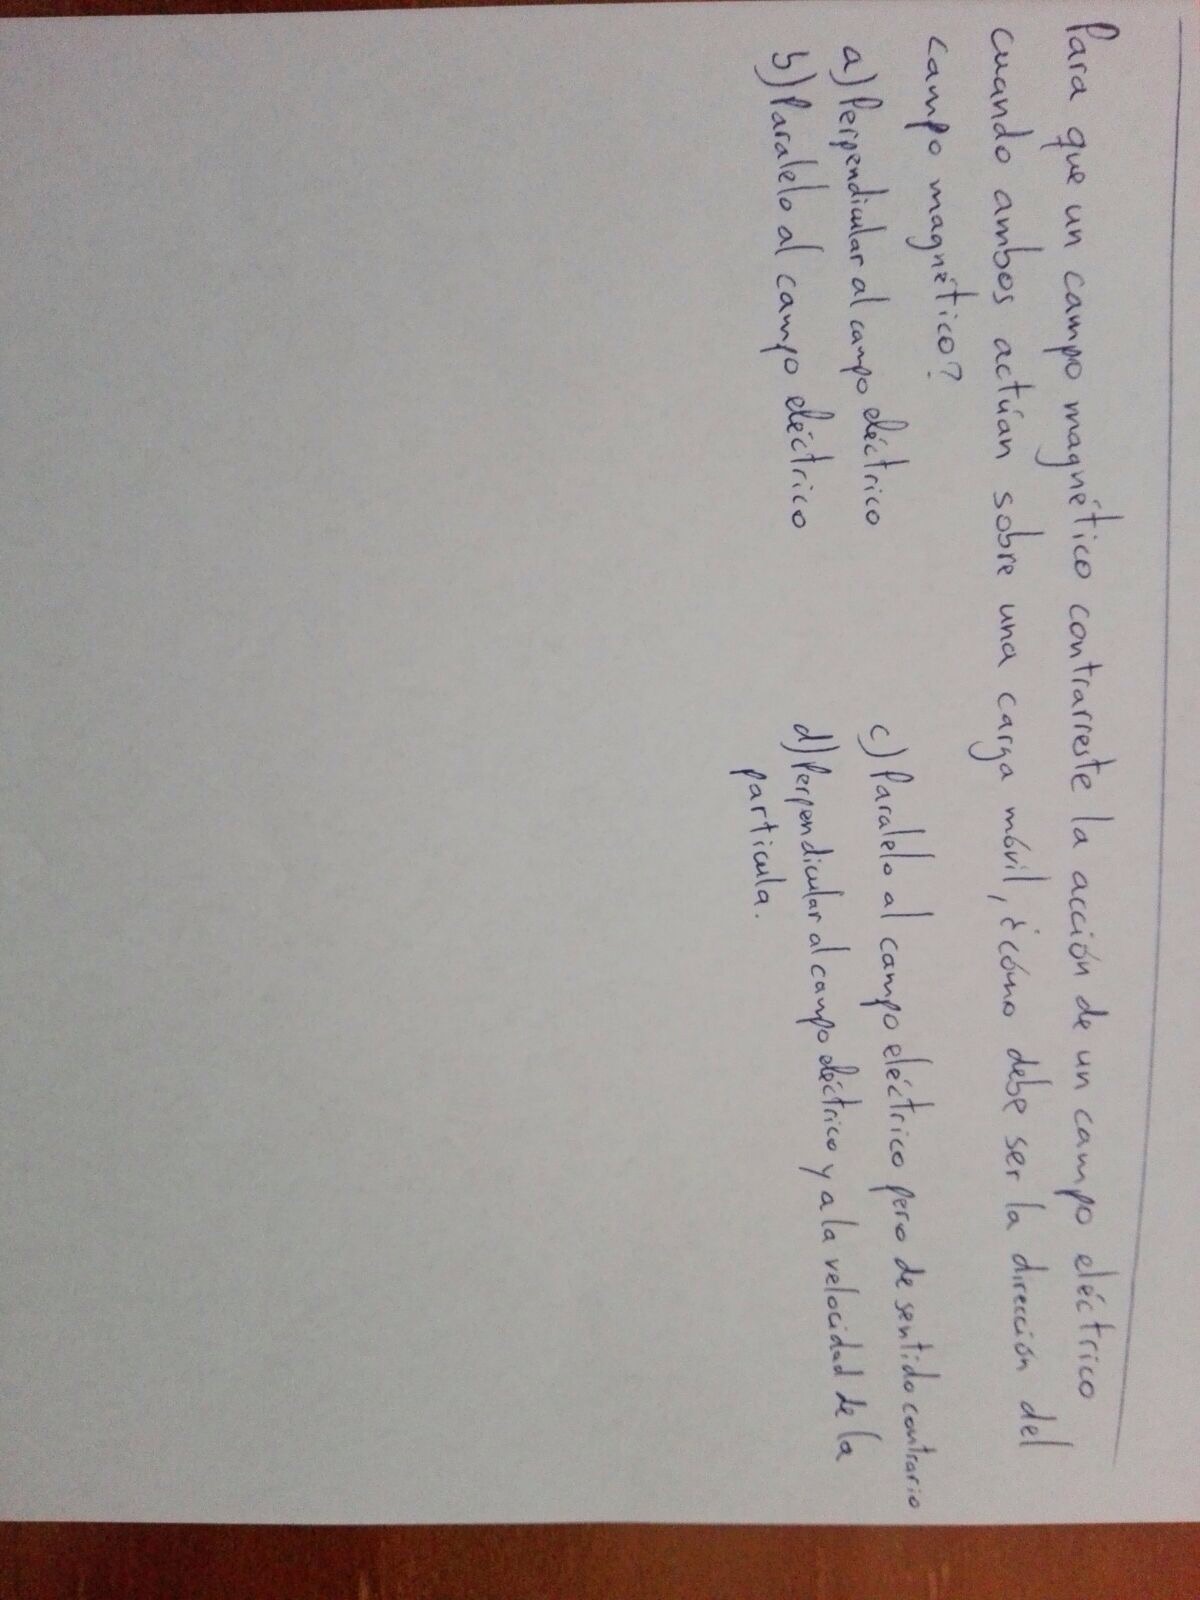 Para que un campo magnético contrarreste la acción de un campo eléctrico
cuando ambos actúan sobre una carga móvil, ¿cómo debe ser la dirección del
campo magnético?
a) Perpendicular al campo eléctrico
b) Paralelo al campo eléctrico
c) Paralelo al campo eléctrico pero de sentido contrario
d) Perpendicular al campo eléctrico y a la velocidad de la
partícula.